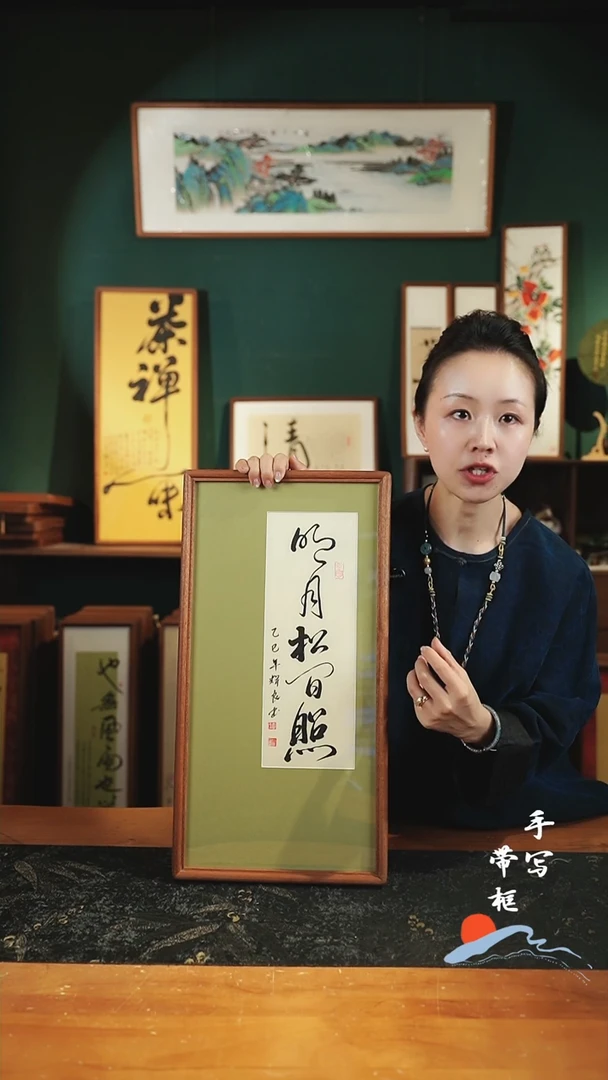 茶禅一味
清
明月松间照
乙巳年辉放书
也无风雨也
手写
带框